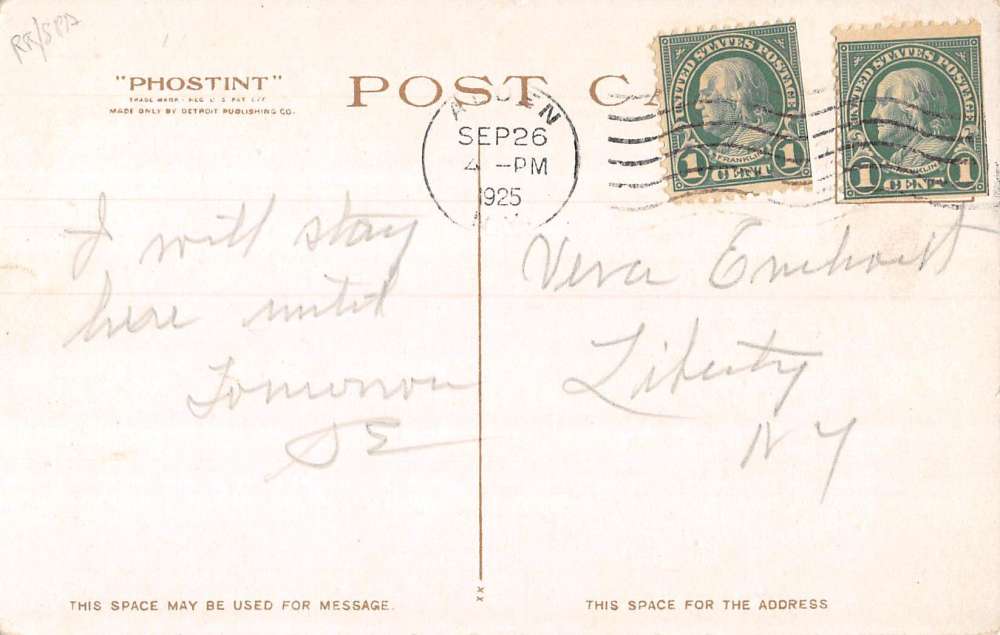 RR/SPA
"PHOSTINT"
TRADE MARK - REG. U. S. PAT. OFF.
MADE ONLY BY DETROIT PUBLISHING CO.
POST CA
SEP 26
4 -PM
1925
UNITED STATES POSTAGE
FRANKLIN
1 CENT 1
UNITED STATES POSTAGE
FRANKLIN
1 CENT 1
I will stay
here until
Tomorrow
SE
Vera
Liberty
N Y
XX
THIS SPACE MAY BE USED FOR MESSAGE.
THIS SPACE FOR THE ADDRESS